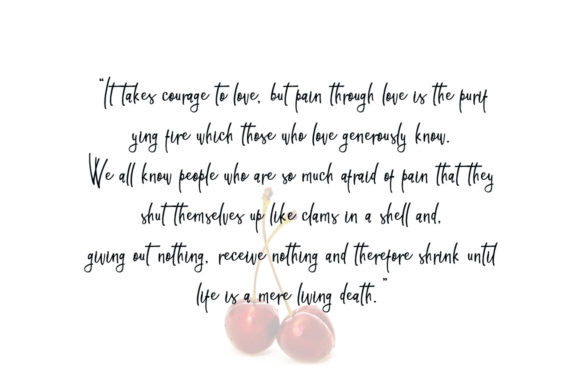 "It takes courage to love, but pain through love is the purif
ying fire which those who love generously know.
We all know people who are so much afraid of pain that they
shut themselves up like clams in a shell and,
giving out nothing, receive nothing and therefore shrink until
life is a mere living death."